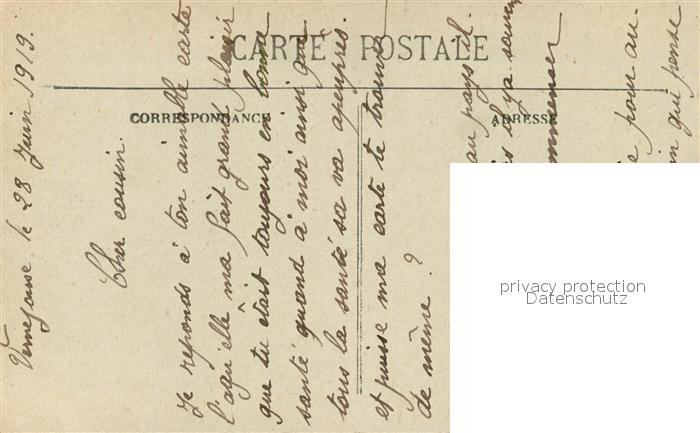 CARTE POSTALE
CORRESPONDANCE
ADRESSE
le 28 Juin 1919.
Cher cousin.
Je reponds à ton aimable carte
l'aqu'elle ma fait grand plaisir
que tu était toujours en bonne
santé quand à moi ainsi que
tous la santé sa va apeuprès.
et puisse ma carte te trouver
de même ?
au pays il
il y a
pour au.
qui pense
privacy protection
Datenschutz